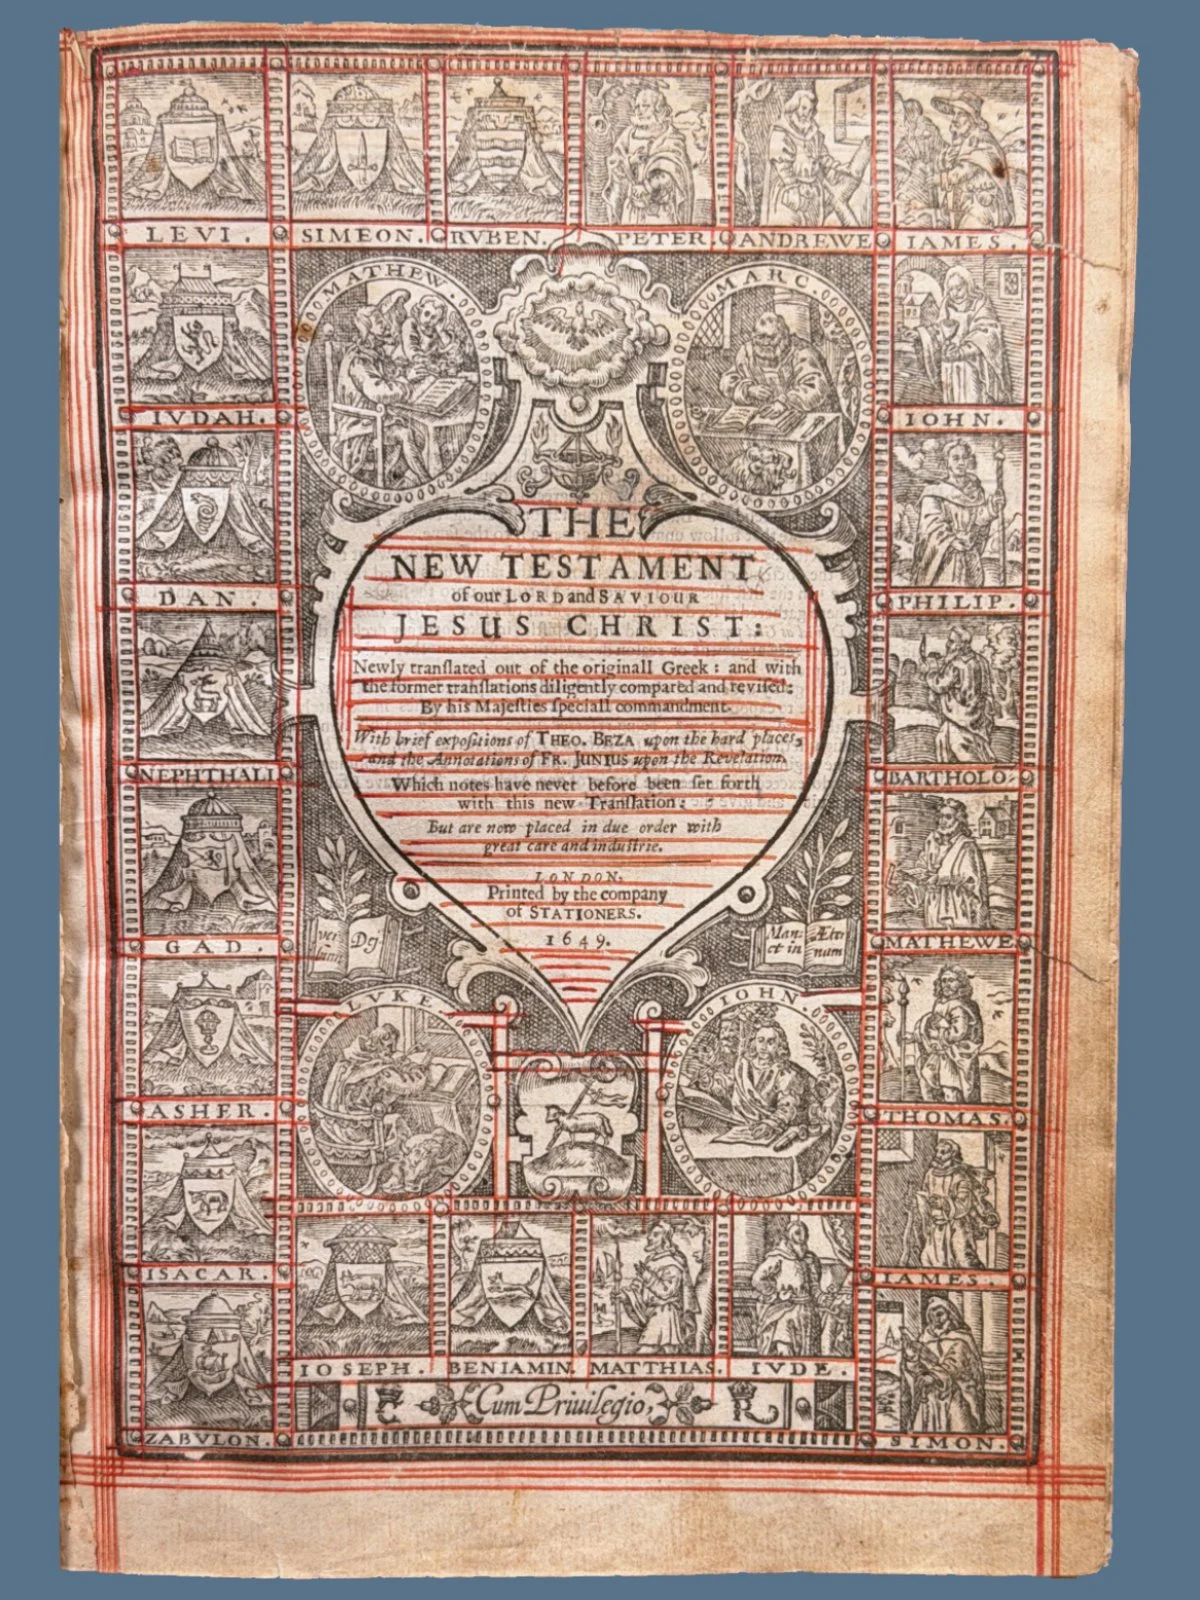 LEVI. SIMEON. RVBEN. PETER. ANDREWE IAMES.
MATHEW. MARC.
IVDAH. IOHN.
THE
NEW TESTAMENT
of our LORD and SAVIOUR
JESUS CHRIST:
DAN. PHILIP.
Newly tranſlated out of the originall Greek: and with
the former tranſlations diligently compared and reviſed:
By his Majeſties ſpeciall commandment.
With brief expoſitions of THEO. BEZA upon the hard places,
and the Annotations of FR. JUNIUS upon the Revelation.
Which notes have never before been ſet forth
with this new Tranſlation:
But are now placed in due order with
great care and induſtrie.
NEPHTHALI BARTHOLO:
LONDON,
Printed by the company
of STATIONERS.
1649.
GAD. MATHEWE
ver Dej
Man: Æter
et in num
LVKE IOHN.
ASHER. THOMAS.
ISACAR. IAMES.
IOSEPH. BENIAMIN. MATTHIAS. IVDE.
Cum Priuilegio,
ZABVLON. SIMON.